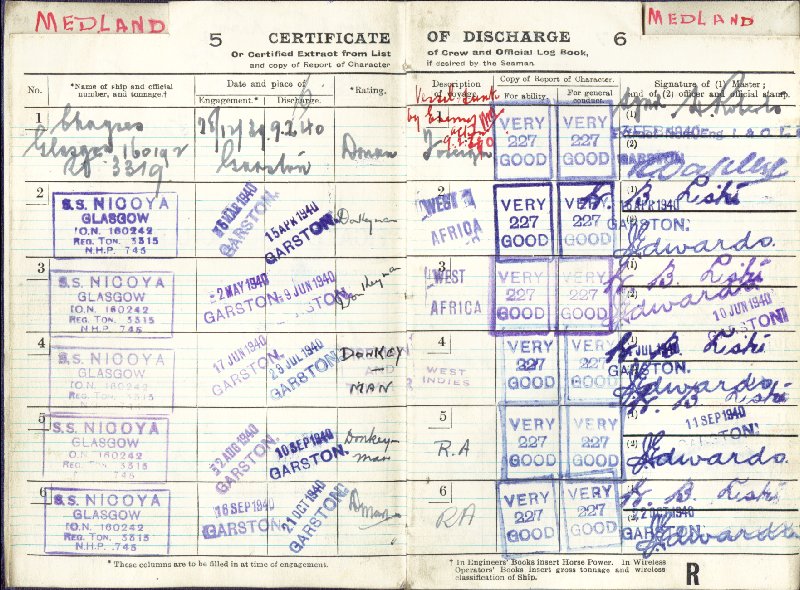 MEDLAND
5 CERTIFICATE
Or Certified Extract from List
and copy of Report of Character
No.
*Name of ship and official number, and tonnage.†
Date and place of
Engagement.*
Discharge.
*Rating.
1
Chagres
Glasgow 160192
3319
9.2.40
Garston
Donkeyman
2
S.S. NICOYA
GLASGOW
I.O.N. 160242
REG. TON. 3315
N.H.P. 745
GARSTON.
15 APR 1940
GARSTON.
Donkeyman
3
S.S. NICOYA
GLASGOW
I.O.N. 160242
REG. TON. 3315
N.H.P. 745
-2 MAY 1940
GARSTON.
-9 JUN 1940
GARSTON.
Donkeyman
4
S.S. NICOYA
GLASGOW
I.O.N. 160242
REG. TON. 3315
N.H.P. 745
17 JUN 1940
GARSTON.
29 JUL 1940
GARSTON.
DONKEY
MAN
5
S.S. NICOYA
GLASGOW
O.N. 160242
REG. TON. 3315
N.H.P. 745
-2 AUG 1940
GARSTON.
10 SEP 1940
GARSTON.
Donkey-
man
6
S.S. NICOYA
GLASGOW
I.O.N. 160242
REG. TON. 3315
N.H.P. .745
16 SEP 1940
GARSTON.
21 OCT 1940
GARSTON.
D.man
*These columns are to be filled in at time of engagement.
MEDLAND
OF DISCHARGE 6
of Crew and Official Log Book,
if desired by the Seaman.
Description of voyage.
Copy of Report of Character.
For ability.
For general conduct.
Signature of (1) Master;
and of (2) officer and official stamp.
Vessel sunk
by Enemy
9.2.40
1
Foreign
VERY 227 GOOD
VERY 227 GOOD
(1)
GARSTON
2
WEST
AFRICA
VERY 227 GOOD
VERY 227 GOOD
(2)
GARSTON.
Edwards.
3
WEST
AFRICA
VERY 227 GOOD
VERY 227 GOOD
(1)
(2)
Edwards
10 JUN 1940
GARSTON.
4
WEST
INDIES
VERY 227 GOOD
VERY 227 GOOD
(1)
JUL 1940
GARSTON.
Edwards
5
R.A
VERY 227 GOOD
VERY 227 GOOD
(1)
11 SEP 1940
GARSTON.
(2)
Edwards
6
RA
VERY 227 GOOD
VERY 227 GOOD
(1)
22 OCT 1940
GARSTON.
Edwards
† In Engineers' Books insert Horse Power. In Wireless
Operators' Books insert gross tonnage and wireless
classification of Ship.
R